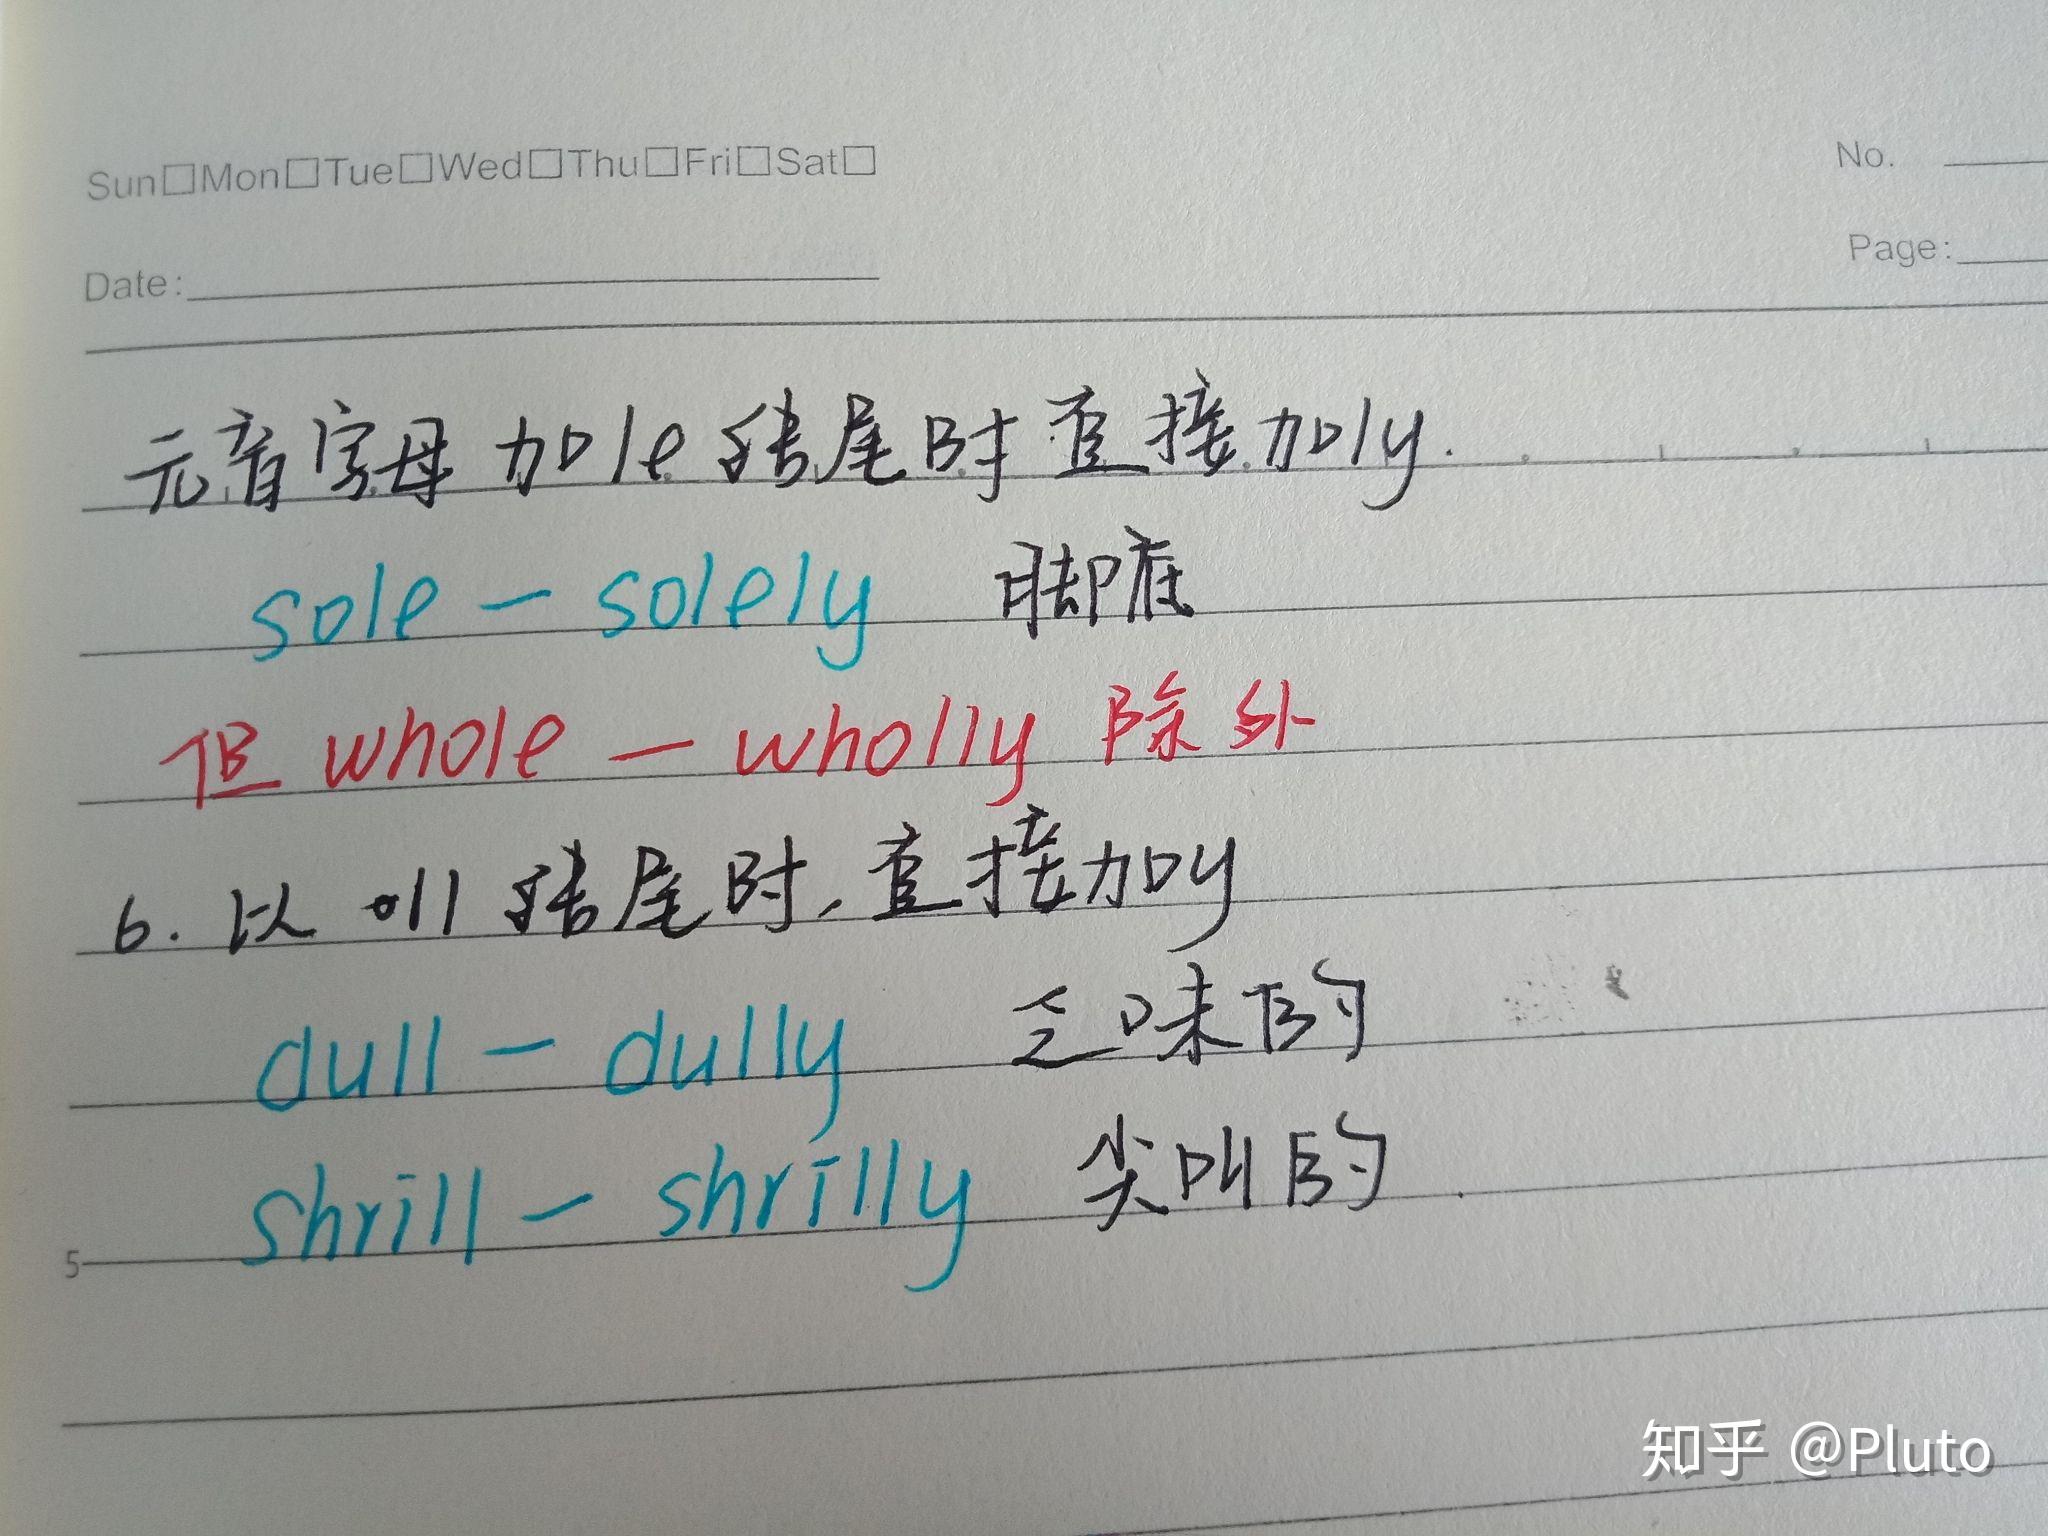 Sun□Mon□Tue□Wed□Thu□Fri□Sat□
No.
Date:
Page:
元音字母加le结尾时直接加ly.
sole - solely 脚底
但 whole - wholly 除外
6. 以 ll 结尾时,直接加y
dull - dully 乏味的
shrill - shrilly 尖叫的
5
知乎 @Pluto